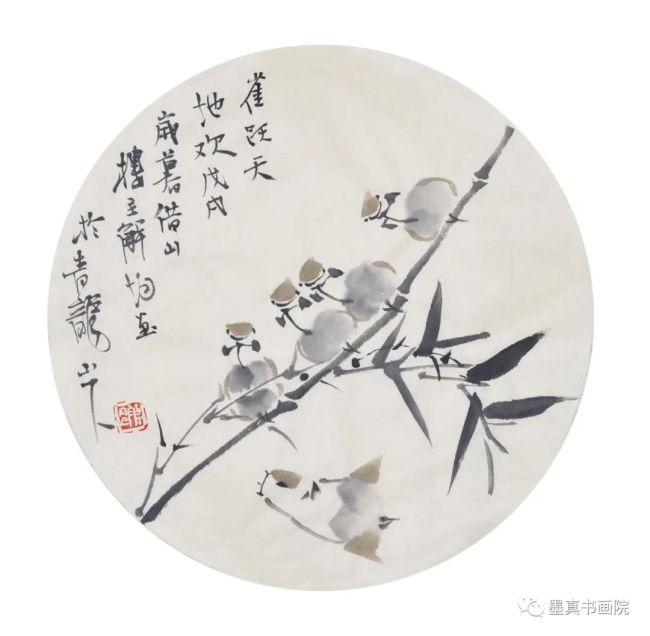 雀跃天
地欢戊戌
岁暮借山
楼主解均画
於青龍山下
墨真书画院